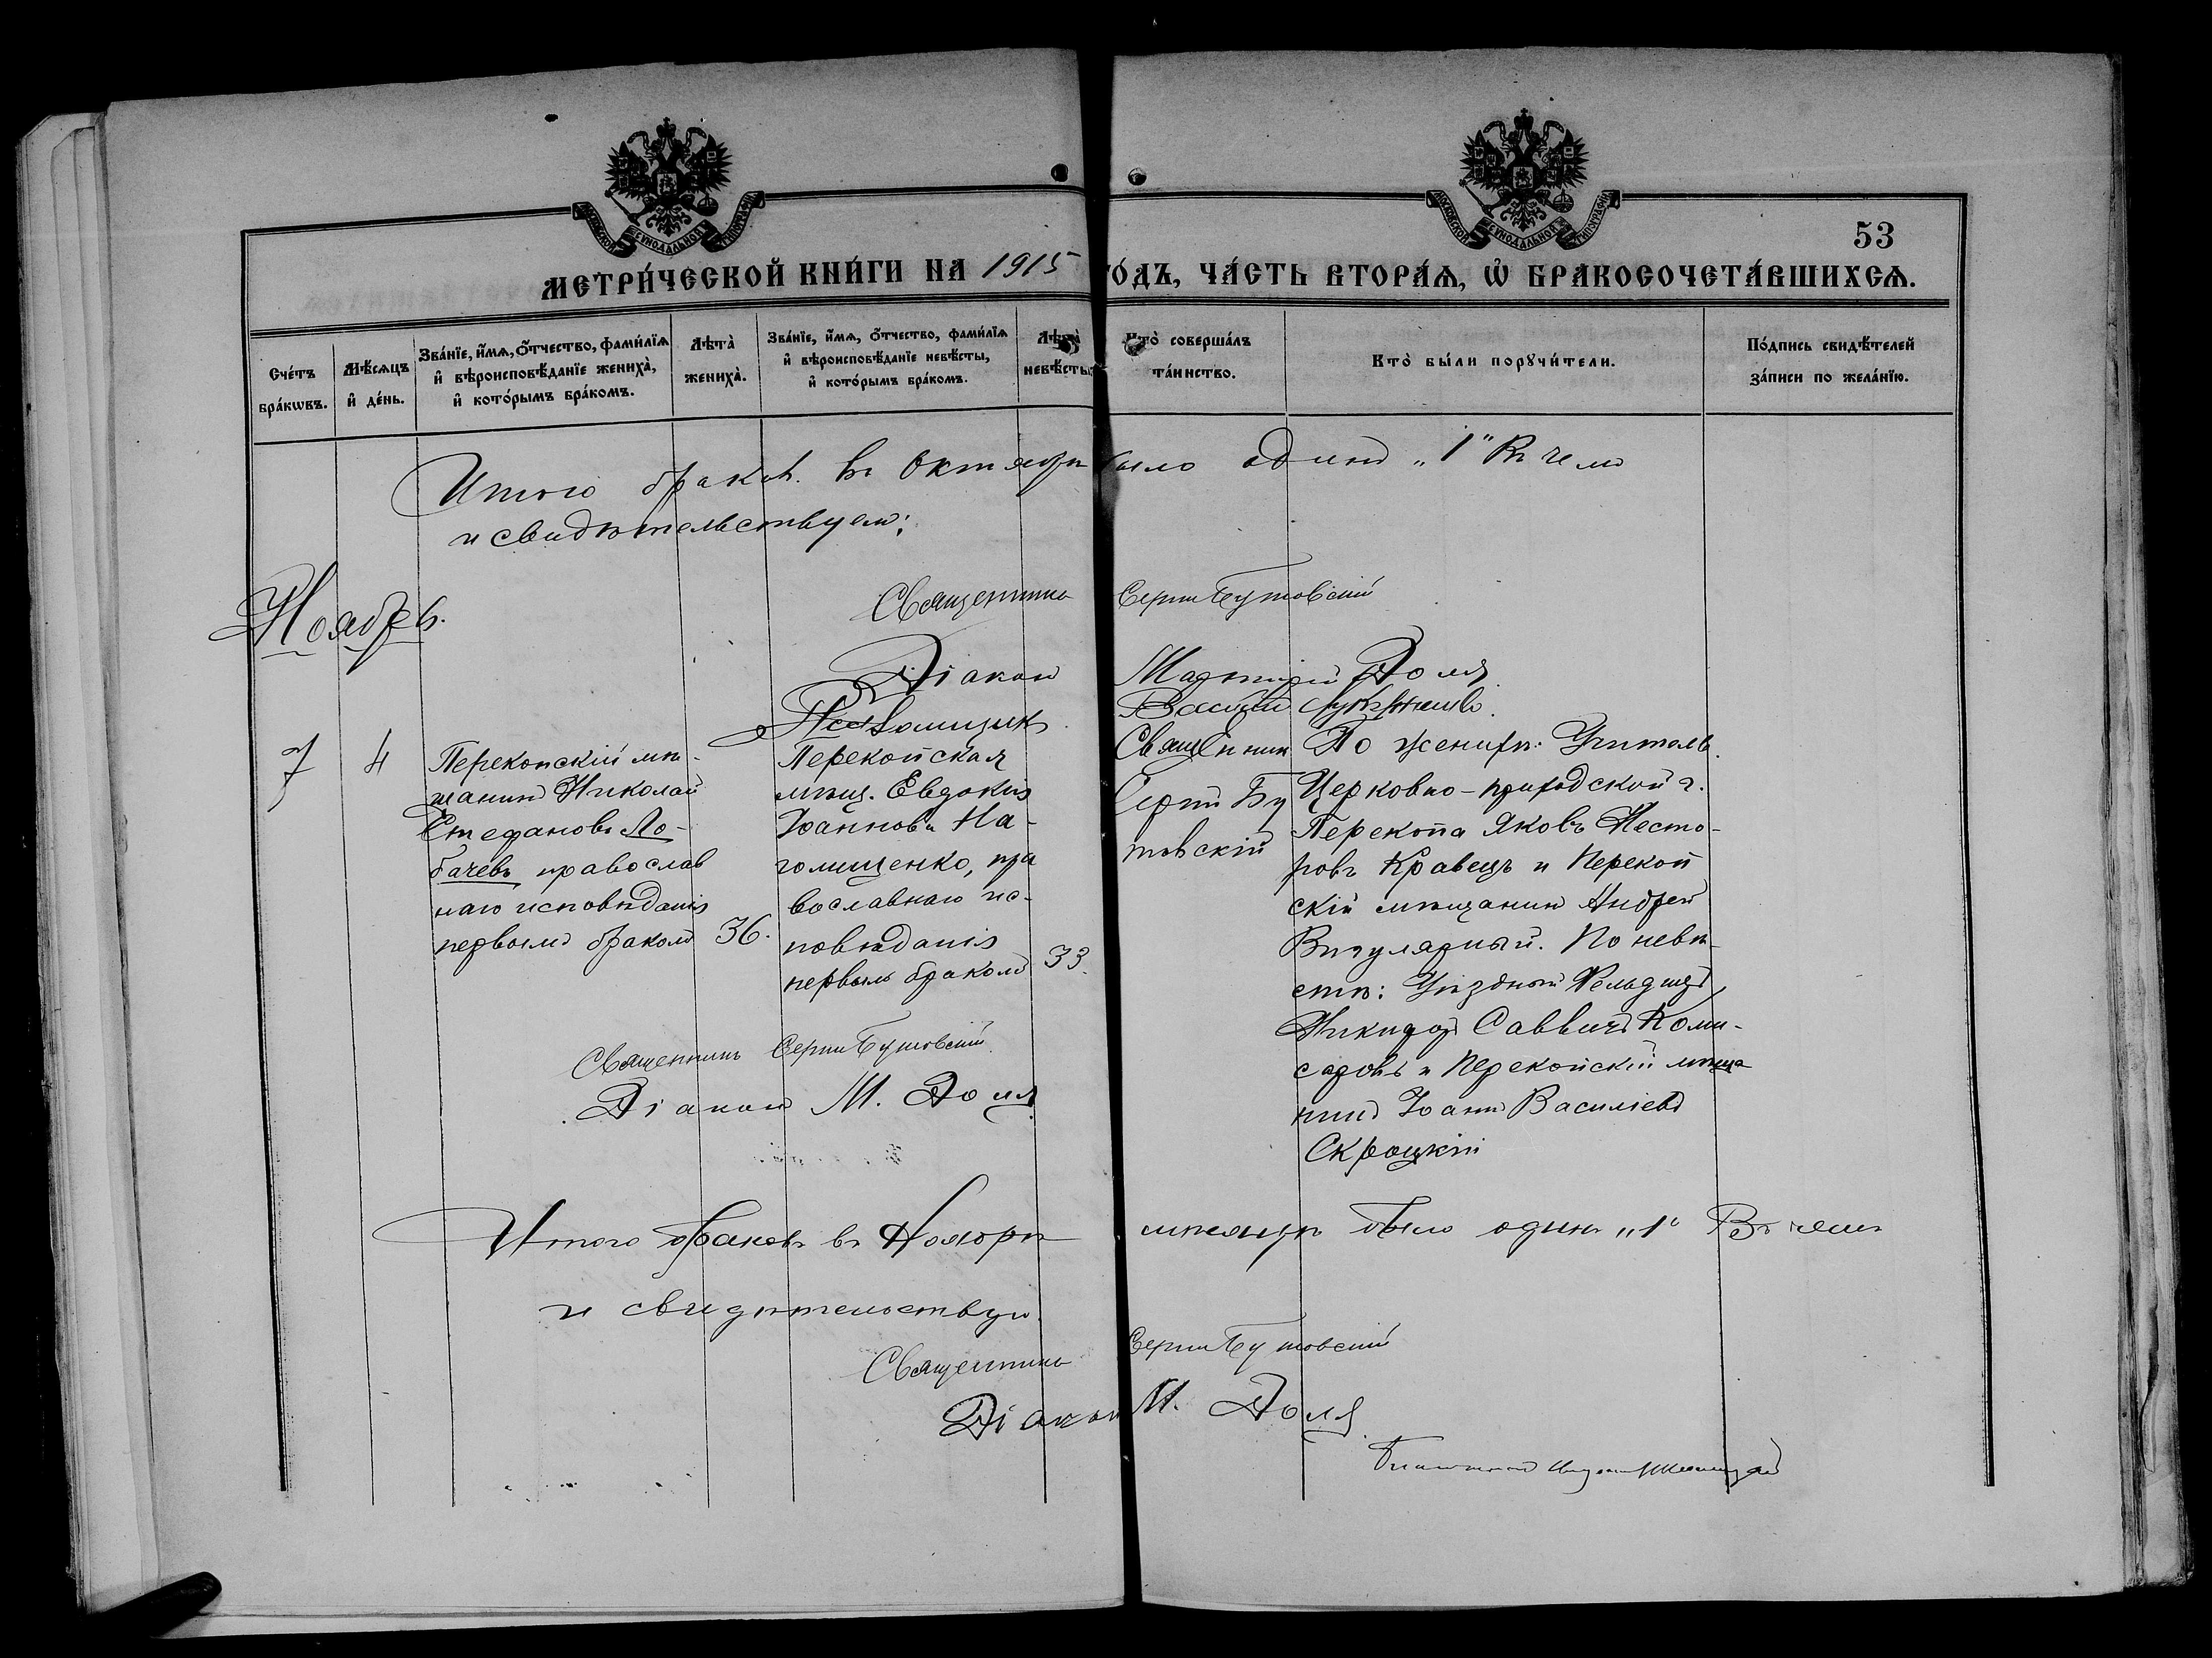 МОСКОВСКОЙ СУНОДАЛЬНОЙ ТИПОГРАФІИ
МОСКОВСКОЙ СУНОДАЛЬНОЙ ТИПОГРАФІИ
53
МЕТРИ́ЧЕСКОЙ КНИ́ГИ НА 1915 ГО́ДЪ, ЧА́СТЬ ВТОРА́Ѧ, Ѽ БРАКОСОЧЕТА́ВШИХСѦ.
Сче́тъ бра́кѡвъ.
Мѣ́сѧцъ и҆ де́нь.
Зва́нїе, и҆́мѧ, ѻ҆́тчество, фами́лїѧ и҆ вѣроисповѣ́данїе жениха̀, и҆ кото́рымъ бра́комъ.
Лѣта̀ жениха̀.
Зва́нїе, и҆́мѧ, ѻ҆́тчество, фами́лїѧ и҆ вѣроисповѣ́данїе невѣ́сты, и҆ кото́рымъ бра́комъ.
Лѣта̀ невѣ́сты.
Кто̀ соверша́лъ та́инство.
Кто̀ бы́ли порꙋчи́тели.
По́дпись свидѣ́телей за́писи по жела́нїю.
Итого браков. въ Октябрѣ было одинъ „1" Въ чемъ
и свидѣтельствуем:
Священникъ Сергій Бутовскій
Ноябрь.
Діаконъ Мартирій Доля
Псаломщикъ Василій
7
4
Перекопскій мѣ-
щанинъ Николай
Стефановъ Ло-
бачевъ православ
наго исповѣданія
первымъ бракомъ
36.
Перекопская
мѣщ. Евдокія
Іоаннова На-
голищенко, пра
вославнаго ис-
повѣданія
первымъ бракомъ
33.
Священник
Сергій Бу
товскій
По женихѣ: Учитель
Церковно-приходской г.
Перекопа Яковъ Несто-
ровъ Кравецъ и Перекоп
скій мѣщанинъ Андрей
Вигулярный. По невѣ-
стѣ: Уѣздный Фельдшеръ
Никифоръ Саввичъ Коми-
саровъ и Перекопскій мѣща
нинъ Іоаннъ Василіевъ
Скроцкій
Священникъ Сергій Бутовскій
Діаконъ М. Доля
Итого браковъ въ Ноябрѣ мѣсяцѣ было одинъ „1" Въ чемъ
и свидѣтельствуем
Священникъ Сергій Бутовскій
Діаконъ М. Доля